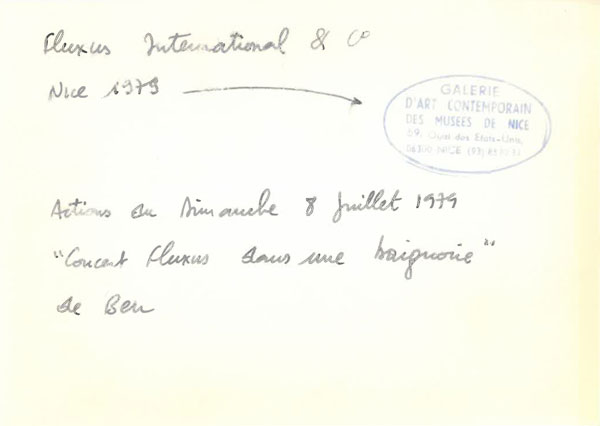 Fluxus International & Co
Nice 1979
GALERIE
D'ART CONTEMPORAIN
DES MUSEES DE NICE
59, Quai des Etats-Unis,
06300 NICE (93)
Actions du Dimanche 8 Juillet 1979
"Concert Fluxus dans une baignoire"
de Ben